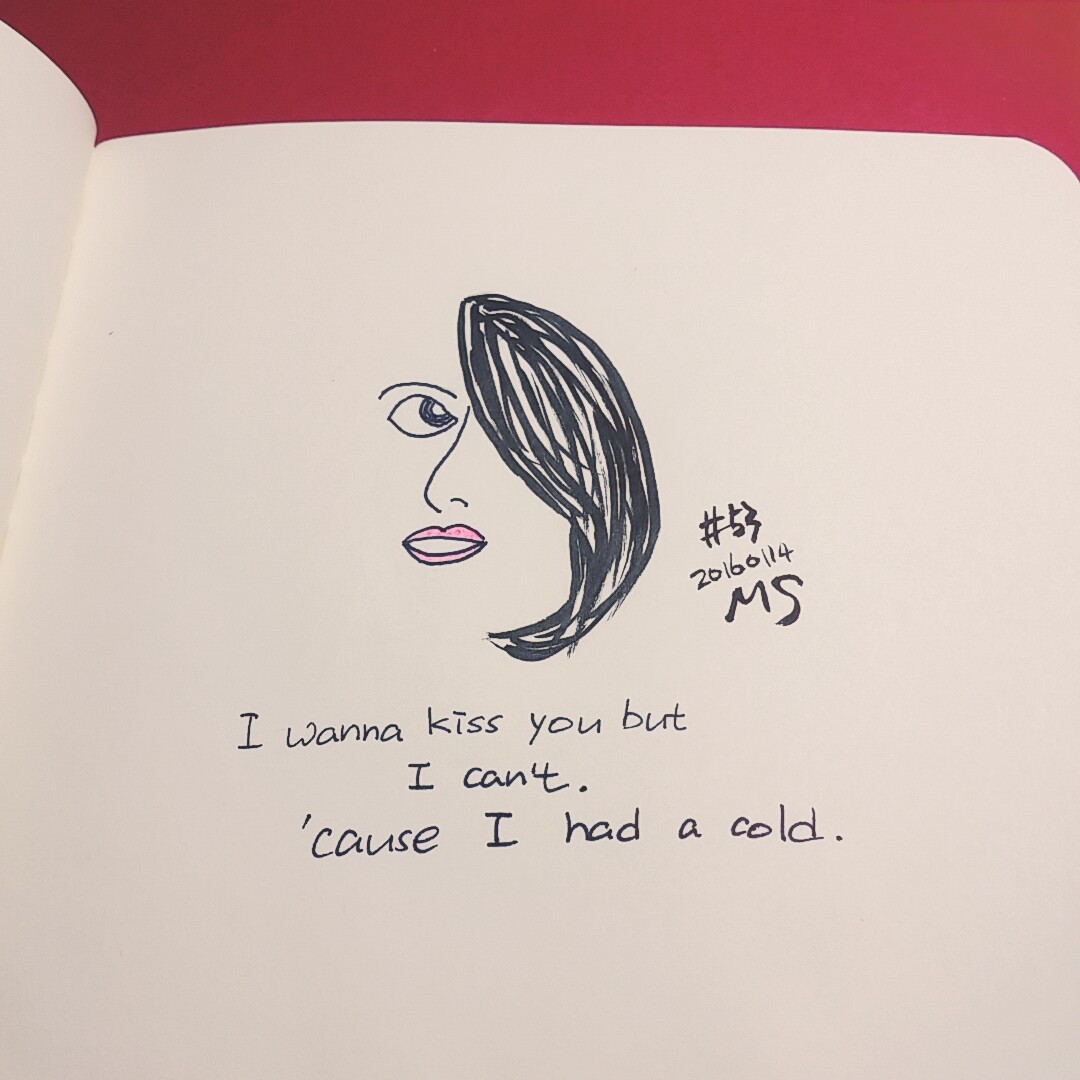 #53
20160114
MS
I wanna kiss you but
I can't.
'cause I had a cold.